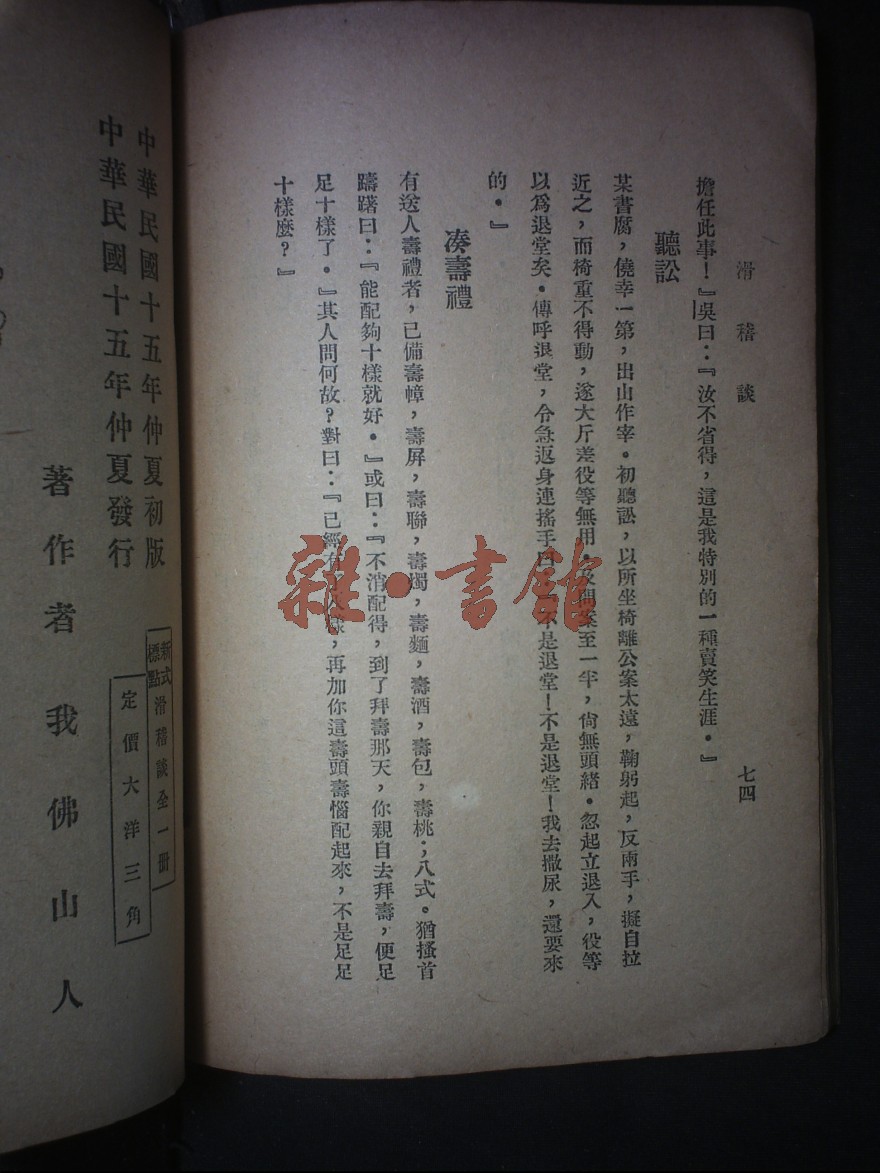 滑稽談
七四
擔任此事！』吳曰：『汝不省得，這是我特別的一種賣笑生涯。』
聽訟
某書腐，僥幸一第，出山作宰。初聽訟，以所坐椅離公案太遠，鞠躬起，反兩手，擬自拉
近之，而椅重不得動，遂大斤差役等無用。及 案至一半，尙無頭緒。忽起立退入，役等
以爲退堂矣。傳呼退堂，令急返身連搖手曰 不是退堂！不是退堂！我去撒尿，還要來
的。』
凑壽禮
有送人壽禮者，已備壽幛，壽屏，壽聯，壽燭，壽麵，壽酒，壽包，壽桃；八式。猶搔首
躊躇曰：『能配夠十樣就好。』或曰：『不消配得，到了拜壽那天，你親自去拜壽，便足
足十樣了。』其人問何故？對曰：『已經有 樣，再加你這壽頭壽惱配起來，不是足足
十樣麼？』
中華民國十五年仲夏初版
中華民國十五年仲夏發行
新式標點
滑稽談全一册
定價大洋三角
著作者我佛山人
雜·書館